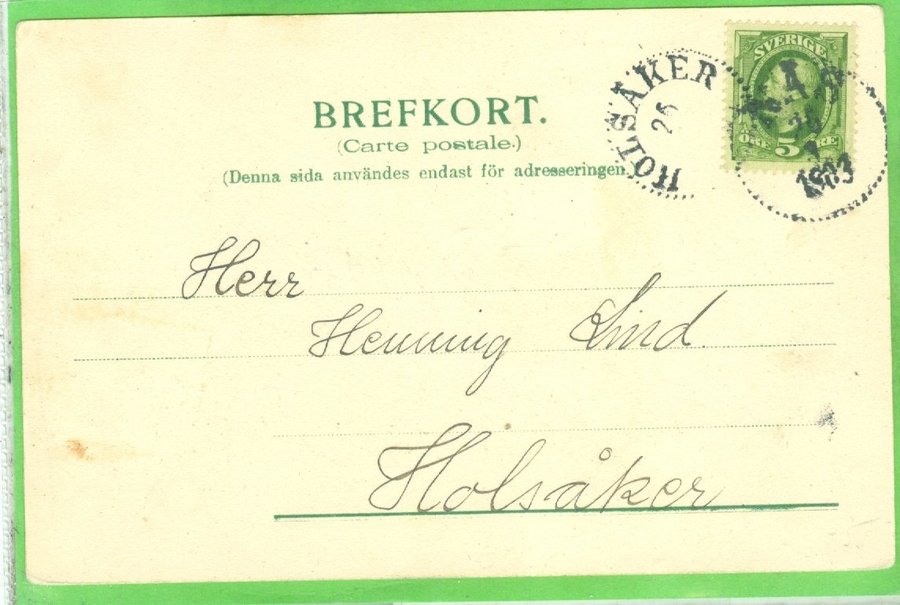 BREFKORT.
(Carte postale.)
(Denna sida användes endast för adresseringen.
HOLSÅKER
26
SVERIGE
ÖRE 5 ÖRE
1903
Herr
Henning Lind.
Holsåker